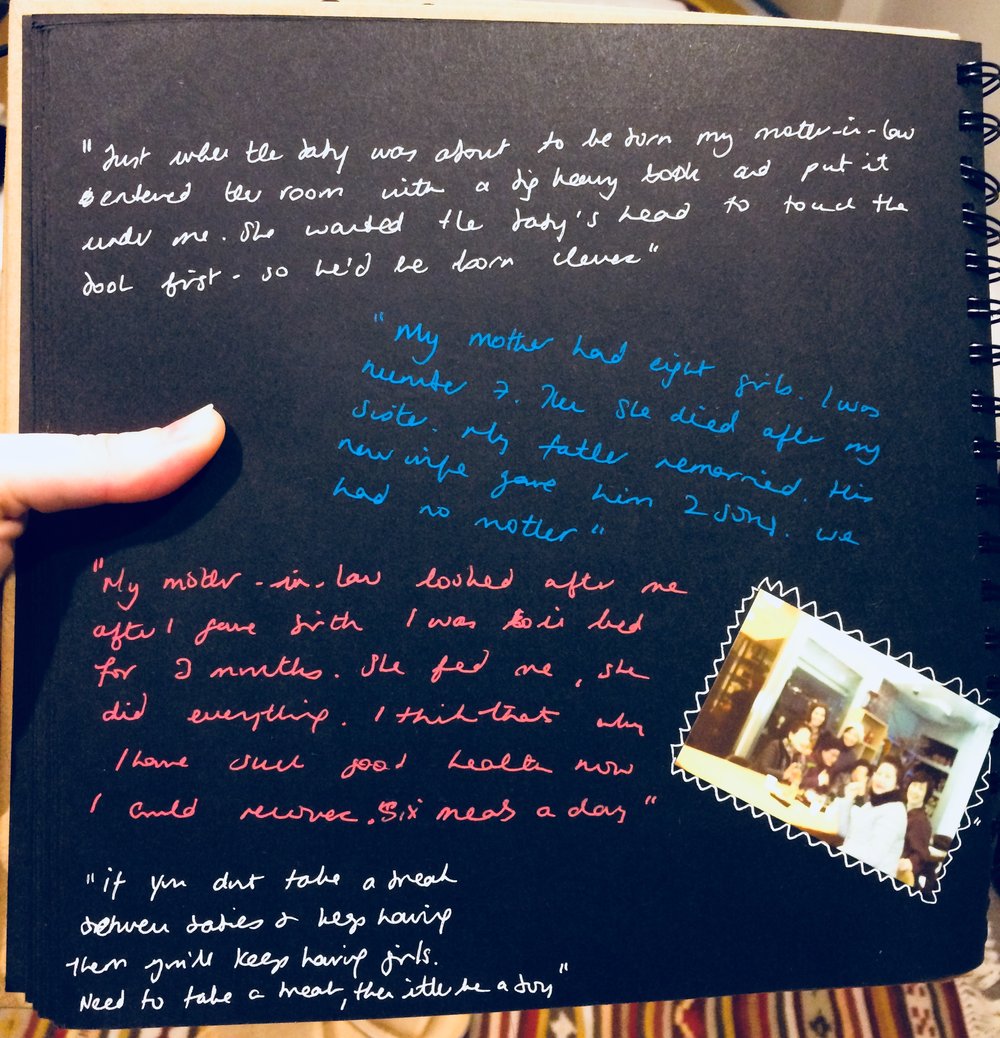 "Just when the baby was about to be born my mother-in-law
entered the room with a big heavy book and put it
under me. She wanted the baby's head to touch the
book first - so he'd be born clever"
"My mother had eight girls. I was
number 7. Then she died after my
sister. My father remarried. His
new wife gave him 2 sons. we
had no mother"
"My mother-in-law looked after me
after I gave birth I was in bed
for 3 months. She fed me, she
did everything. I think thats why
I have such good health now
I could recover. Six meals a day"
"if you dont take a break
between babies & keep having
them you'll keep having girls.
Need to take a break, then itll be a boy"